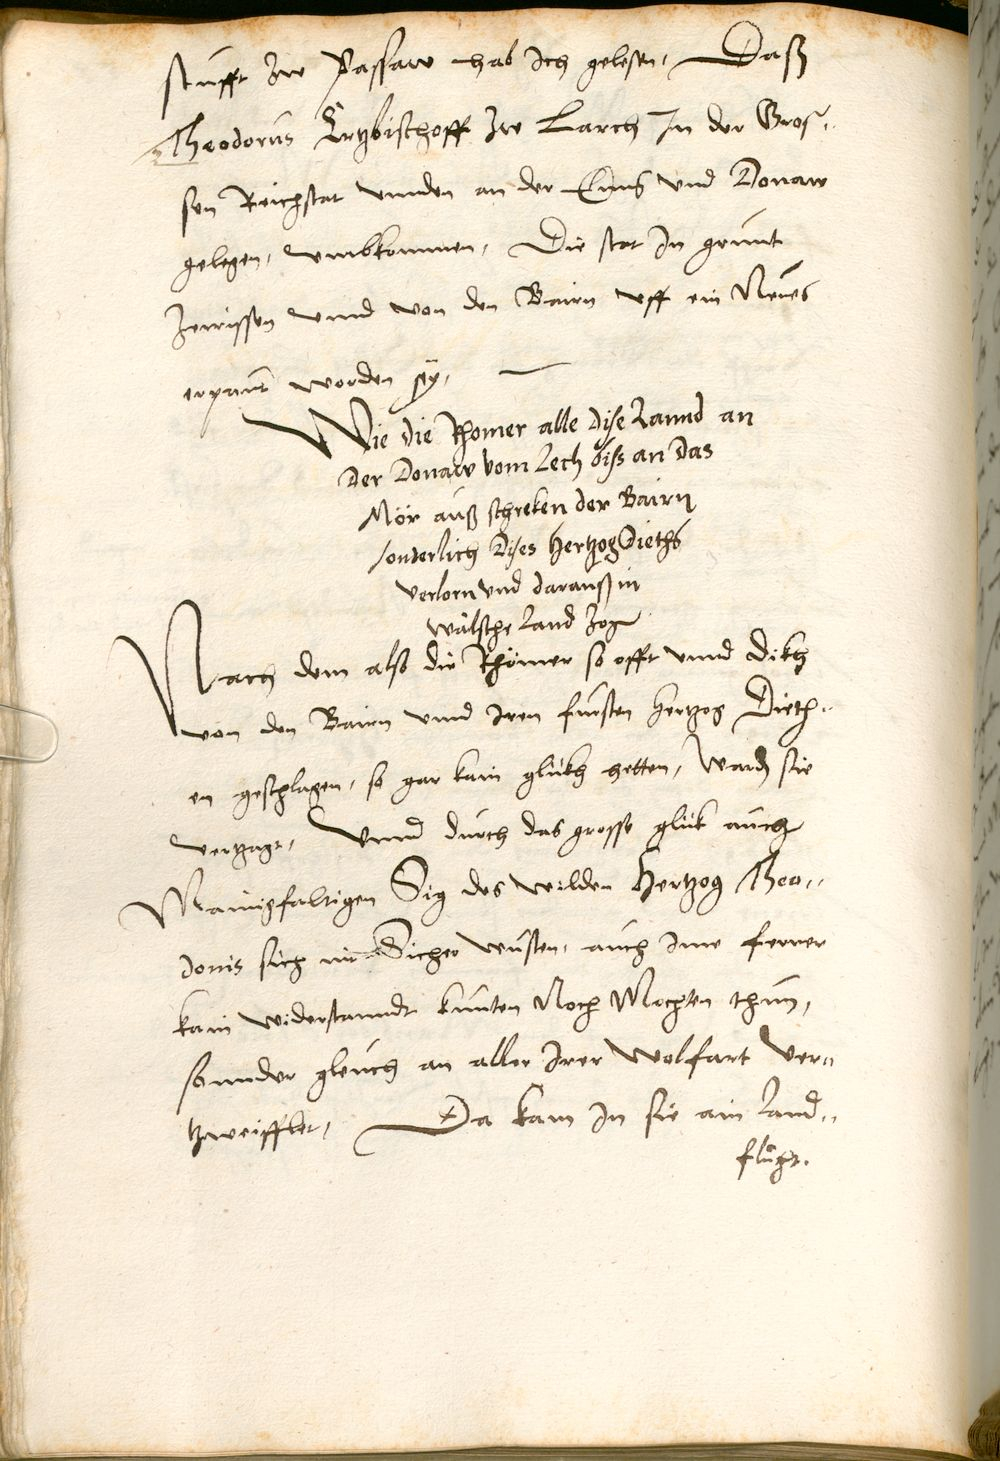 stüfft zw Passaw hab Ich gelesen, Daß
Theodorüs Ertzbischoff zw Larch In der Gros¬
sen Reichstat vnnden an der Enns vnd Donaw
gelegen, vmbkommen, Die stat In grünt
Zerrissen vnnd von den Bairn vff ein Neües
erpaüt worden sey,
Wie die Rhomer alle dise Lannd an
der Donaw vom Lech biss an das
Mör auß schreken der Bairn
sonterlich dises Hertzog Dieths
verlorn vnd darauß in
wälsche Land Zog
Nach dem also die Rhömer so offt vnnd dikh
von den Bairn vnnd Iren fürsten Hertzog Dieth¬
en geschlagen, so gar kain glükh hetten, Wardn sie
vertzagt, Vnnd dürch das grosse glük aüch
Manigfaltigen Sig des wilden Hertzog Theo¬
donis sich nit Sicher wüsten, aüch Ime ferrer
kain widerstanndt künten Noch Mochten thün,
sonnder gleüch an aller Irer Wolfart Ver¬
tzweiffelt, Da kam In sie ain Land¬
flücht.